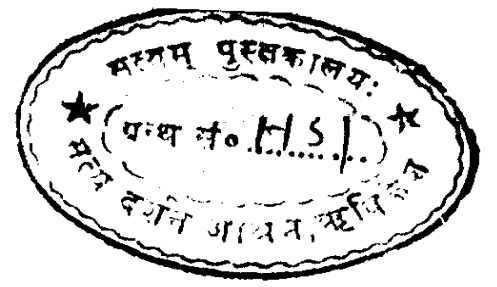 सत्यम् पुस्तकालयः
ग्रन्थ सं० HSI
सत्य दर्शन आश्रम, ऋषिकेश